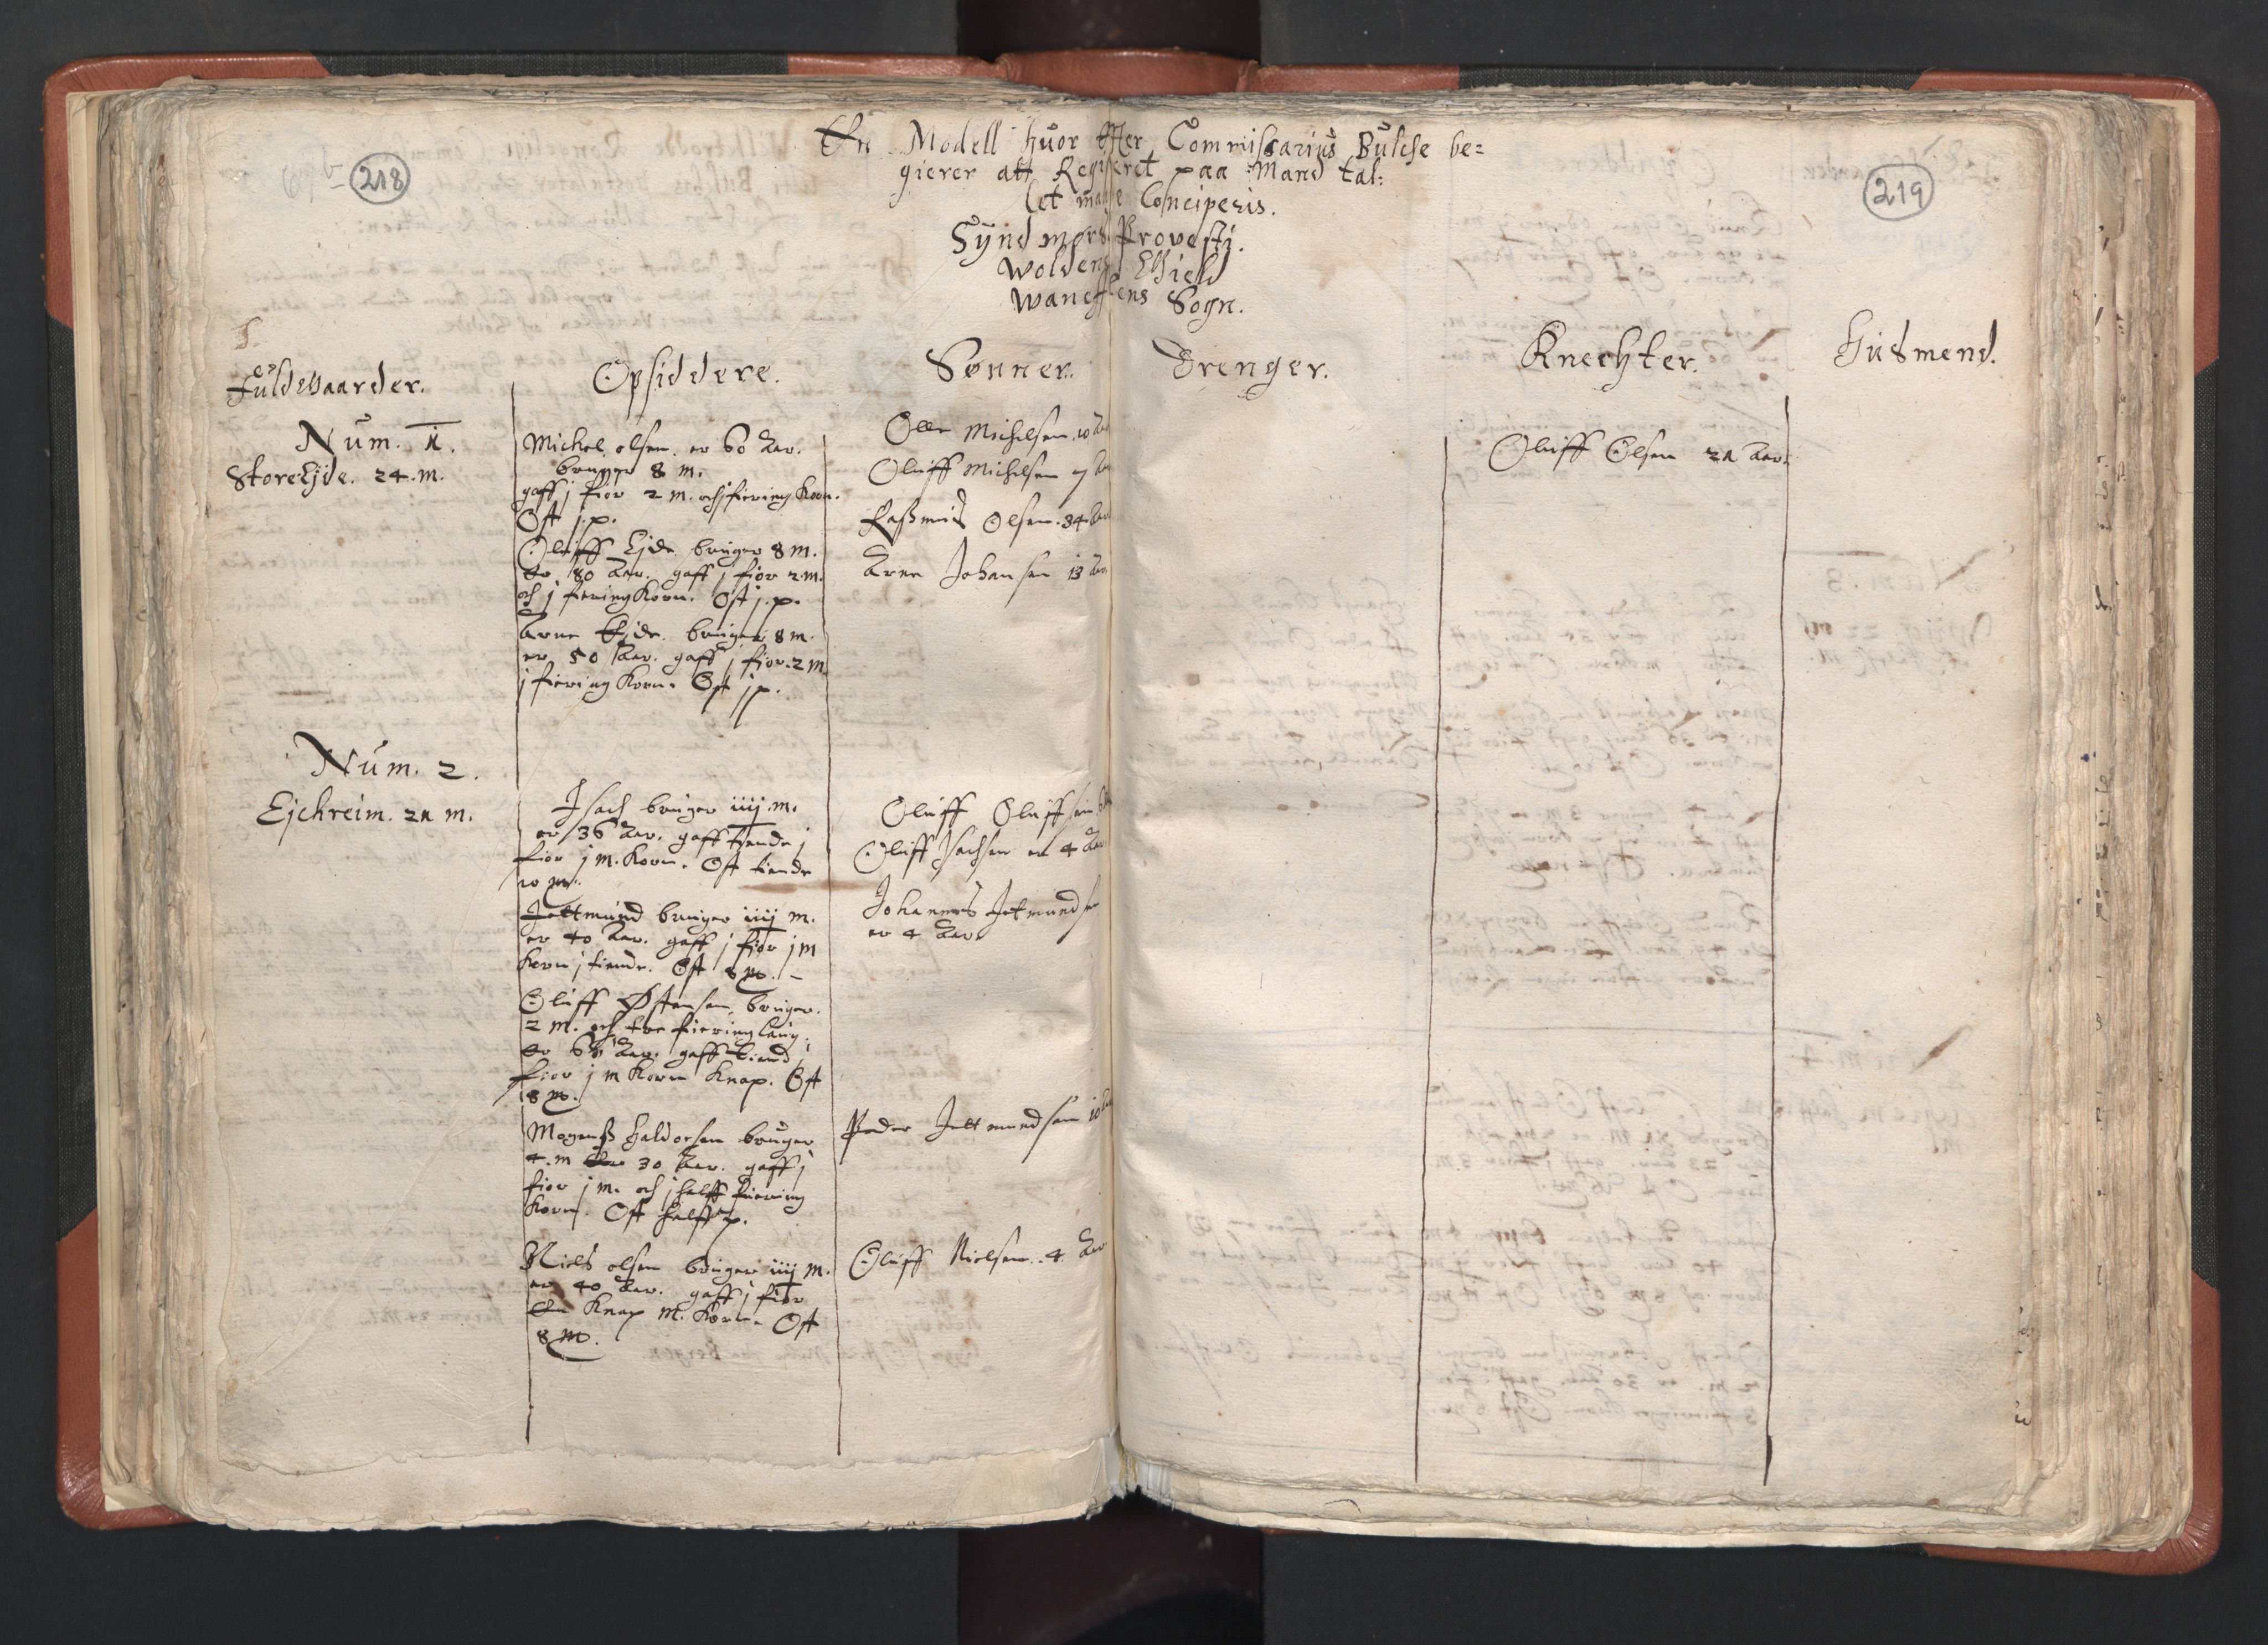 218
219
En Modell huor effter Commissarius Bulche be=
gierer att Registeret paa Mand tal:
let maa Conciperis.
Syndmørs Provesti.
Woldens Gield
Waneffens Sogn.
Fuldegaarder.
Opsiddere.
Sønner.
Drenger.
Knechter.
Husmend.
Num. 1.
StoreEjde. 24. m.
Michel olsen. er 60 Aar.
bruger 8 m.
gaff j fior 2 m. och j fiering Korn.
Ost j. p.
Oluff Ejde bruger 8 m.
er 80 Aar. gaff j fior 2. m.
och j fiering Korn. Ost j. p.
Arne Ejde. bruger 8 m.
er 50 Aar. gaff j fior. 2 m
j fiering Korn. Ost j p.
Olle Michelsen 10 Aar
Oluff Michelsen 7 Aar
Rasmus Olsen. 34 Aar
Arne Johansen 13 Aar
Oluff Olsen 21 Aar.
Num. 2.
Ejchreim. 21 m.
Isach bruger iiij m.
er 36 Aar. gaff tiende j
fior j m. Korn. Ost tiende
10
Jettmund bruger iiij m.
er 40 Aar. gaff j fior j m
Korn j tiende. Ost 8
Oluff Østensen bruger.
2 m. och tre fiering laug.
er 60 Aar. gaff tiend j
fior j m Korn Knap. Ost
8
Mogens Haldorsen bruger
4. m er 30 Aar. gaff j
fior j m. och j halff fiering
Korn. Ost halff p.
Niels olsen bruger iiij m.
er 40 Aar. gaff j fior
En Knap m. Korn. Ost
8
Oluff Oluffsen
Oluff Isachsen er 4 Aar
Johannes Jetmundsen
er 4 Aar.
Peder Jettmundsen 10 Aar
Oluff Nielsen. 4 Aar